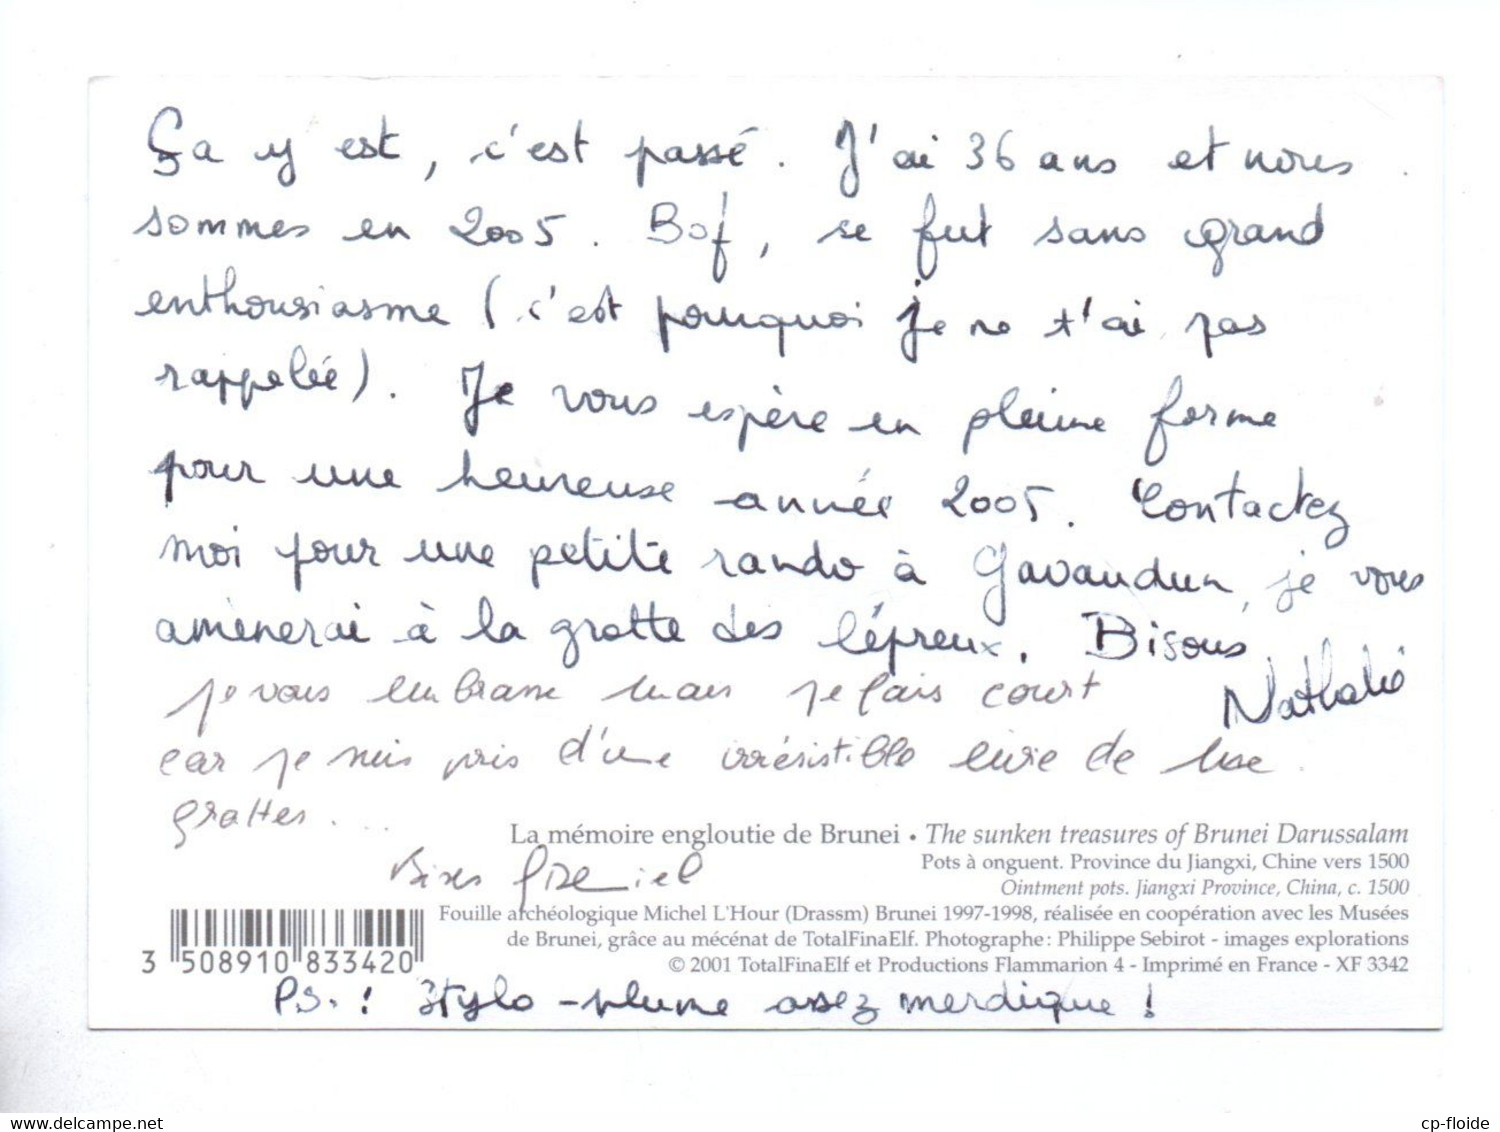 Ça y est, c'est passé. J'ai 36 ans et nous
sommes en 2005. Bof, se fut sans grand
enthousiasme (c'est pourquoi je ne t'ai pas
rappelée). Je vous espère en pleine forme
pour une heureuse année 2005. Contactez
moi pour une petite rando à Gavaudun, je vous
amènerai à la grotte des lépreux. Bisous.
Nathalie
je vous embrasse mais je fais court
car je suis pris d'une irrésistible envie de me
gratter....
La mémoire engloutie de Brunei • The sunken treasures of Brunei Darussalam
Pots à onguent. Province du Jiangxi, Chine vers 1500
Ointment pots. Jiangxi Province, China, c. 1500
Bises
Fouille archéologique Michel L'Hour (Drassm) Brunei 1997-1998, réalisée en coopération avec les Musées
de Brunei, grâce au mécénat de TotalFinaElf. Photographe : Philippe Sebirot - images explorations
© 2001 TotalFinaElf et Productions Flammarion 4 - Imprimé en France - XF 3342
3 508910 833420
PS. : Stylo-plume assez merdique !
www.delcampe.net
cp-floide